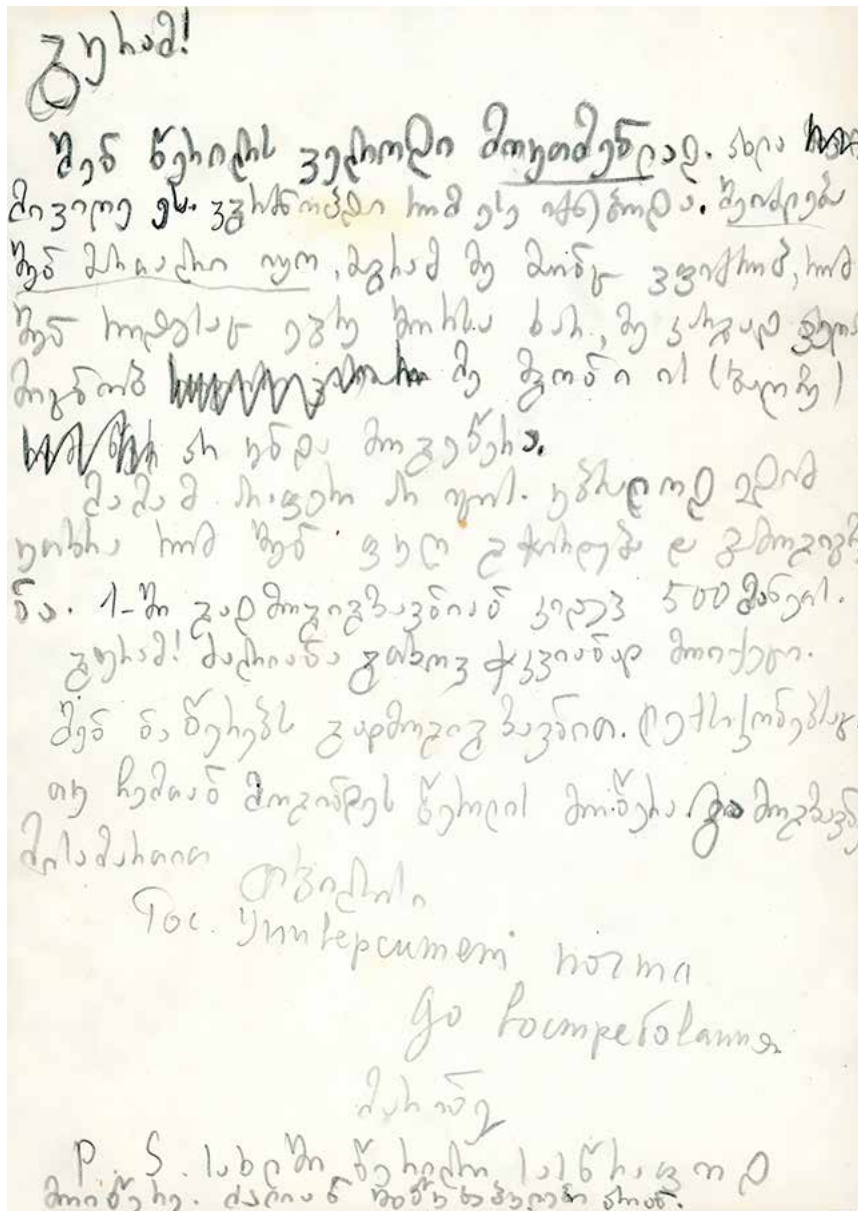 გურამ!
შენ წერილს ველოდი მოუთმენლად. ახლა
მივიღე ეს. ვგრძნობდი რომ ესე იქნებოდა. შეიძლება
შენ მართალი იყო, მაგრამ მე მაინც ვფიქრობ, რომ
შენ როდესაც ეგრე შორსა ხარ, მე კარგად
მიცნობ მე მგონი ის (ბარათი)
არ უნდა მოგეწერა.
მამამ არაფერი არ იცის. უბრალოდ ედიმ
უთხრა რომ შენ ფული გჭირდება და გამოგიგზავ
ნა. 1-ში გადმოგიგზავნიან კიდევ 500 მანეთს.
გურამ! ძალიანა გთხოვ ჭკვიანად მოიქეცი.
შენ ნაწერებს გადმოგიგზავნით. ლექსიკონებსაც.
თუ ჩემთან მოგინდეს წერილის მოწერა. გამოგზავნე
მისამართით
თბილისი
Гос. Университет почта
до востребования
მარინე
P. S. სახლში წერილი სასწრაფოდ
მოიწერე. ძალიან შეწუხებულები არიან.